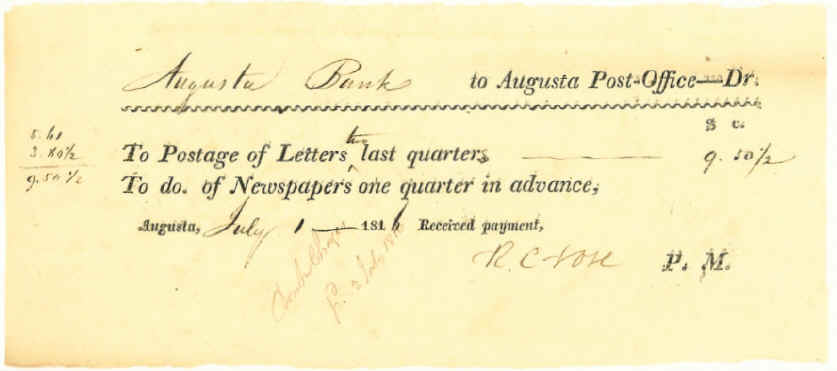 Augusta Bank to Augusta Post-Office—Dr.
$ c.
5.61
3.89½
9.50½
To Postage of Letters two last quarters 9.50½
To do. of Newspapers one quarter in advance,
Augusta, July 1 — 1816 Received payment,
R. C. Vose P. M.
2 July 1816